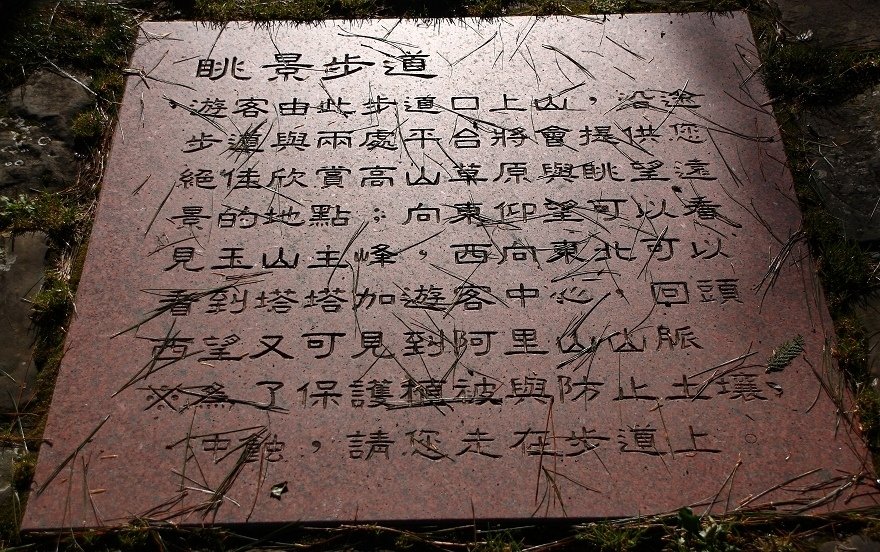 眺景步道
遊客由此步道口上山，沿途
步道與兩處平台將會提供您
絕佳欣賞高山草原與眺望遠
景的地點；向東仰望可以看
見玉山主峰，西向東北可以
看到塔塔加遊客中心，回頭
西望又可見到阿里山山脈
※為了保護植被與防止土壤
沖蝕，請您走在步道上。